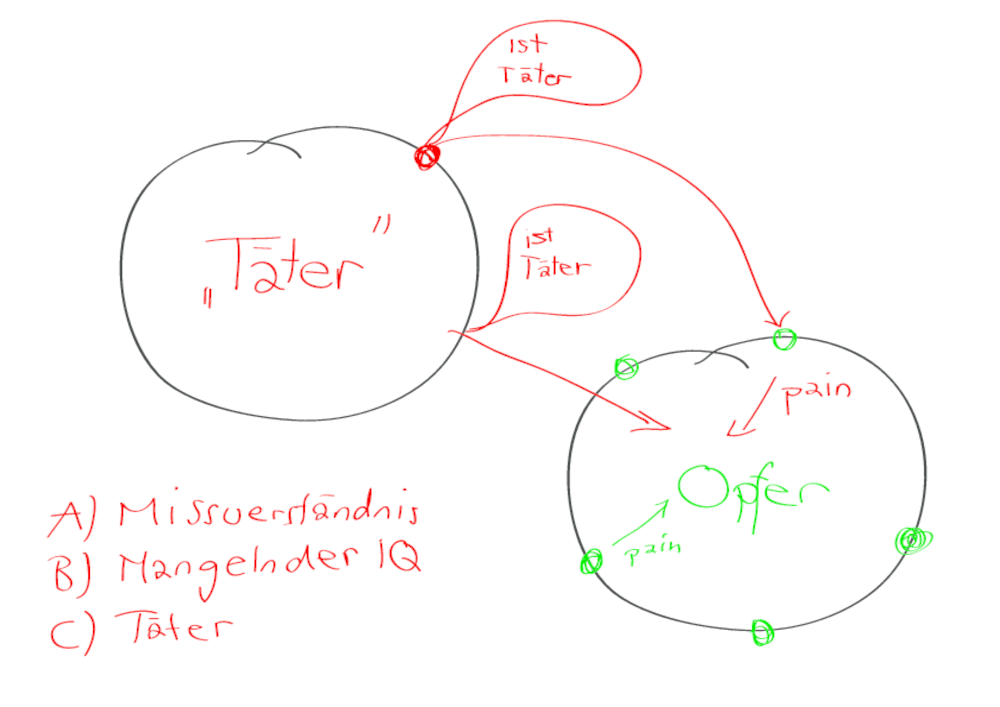 ist
Täter
„Täter"
ist
Täter
pain
Opfer
pain
A) Missverständnis
B) Mangelnder IQ
C) Täter